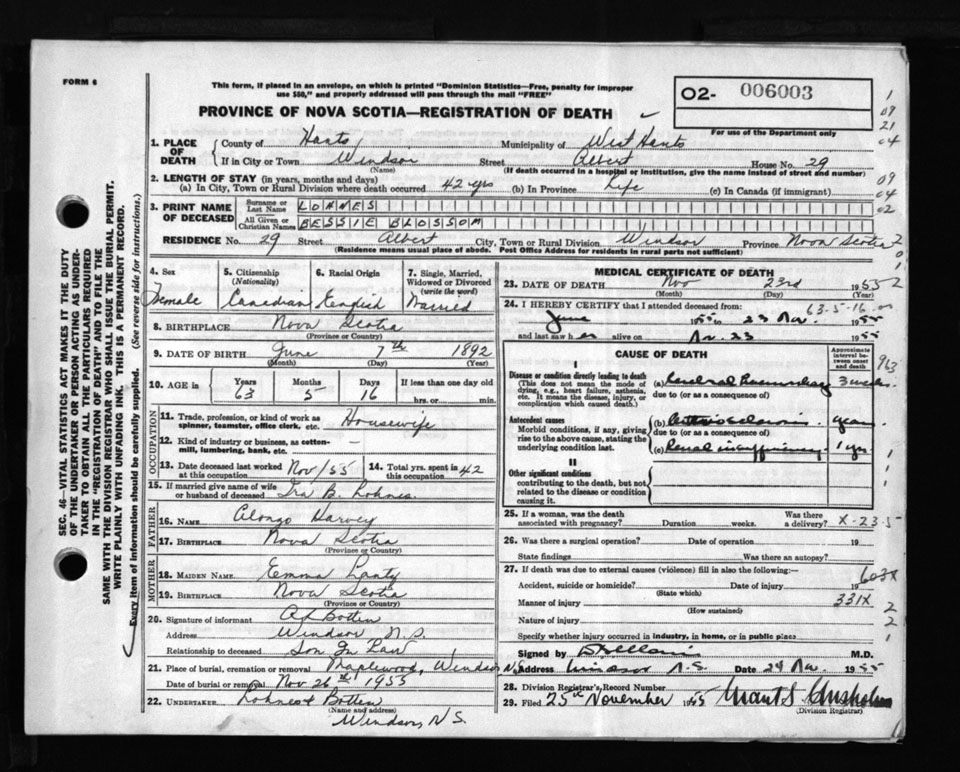 FORM 6
This form, if placed in an envelope, on which is printed "Dominion Statistics—Free, penalty for improper
use $50," and properly addressed will pass through the mail "FREE"
PROVINCE OF NOVA SCOTIA—REGISTRATION OF DEATH
O2- 006003
For use of the Department only
1. PLACE OF DEATH
County of Hants Municipality of West Hants
If in City or Town Windsor Street Albert House No. 29
(Name) (If death occurred in a hospital or institution, give the name instead of street and number)
2. LENGTH OF STAY (in years, months and days)
(a) In City, Town or Rural Division where death occurred 42 yrs (b) In Province Life (c) In Canada (if immigrant)
3. PRINT NAME OF DECEASED
Surname or Last Name LOHNES
All Given or Christian Names BESSIE BLOSSOM
RESIDENCE No. 29 Street Albert City, Town or Rural Division Windsor Province Nova Scotia
(Residence means usual place of abode. Post Office Address for residents in rural parts not sufficient)
4. Sex
Female
5. Citizenship
(Nationality)
Canadian
6. Racial Origin
English
7. Single, Married, Widowed or Divorced
(write the word)
Married
8. BIRTHPLACE Nova Scotia
(Province or Country)
9. DATE OF BIRTH June 7th 1892
(Month) (Day) (Year)
10. AGE in Years Months Days If less than one day old
63 5 16 hrs. or min.
OCCUPATION
11. Trade, profession, or kind of work as
spinner, teamster, office clerk, etc. Housewife
12. Kind of industry or business, as cotton-
mill, lumbering, bank, etc. —
13. Date deceased last worked at this occupation Nov/55 14. Total yrs. spent in this occupation 42
15. If married give name of wife
or husband of deceased Ira B. Lohnes
FATHER
16. NAME Alonzo Harvey
17. BIRTHPLACE Nova Scotia
(Province or Country)
MOTHER
18. MAIDEN NAME Emma
19. BIRTHPLACE Nova Scotia
(Province or Country)
20. Signature of informant Botten
Address Windsor N.S.
Relationship to deceased Son In Law
21. Place of burial, cremation or removal Maplewood, Windsor N.S.
Date of burial or removal Nov 26th 1955
22. UNDERTAKER Lohnes & Botten
(Name and address)
Windsor, N.S.
MEDICAL CERTIFICATE OF DEATH
23. DATE OF DEATH Nov 23rd 1955
(Month) (Day) (Year)
24. I HEREBY CERTIFY that I attended deceased from: 63-5-16
June 1955 to 23 Nov. 1955
and last saw her alive on Nov. 23 1955
CAUSE OF DEATH
Approximate interval between onset and death
I
Disease or condition directly leading to death
(This does not mean the mode of
dying, e.g., heart failure, asthenia,
etc. It means the disease, injury, or
complication which caused death.)
(a) Cerebral Haemorrhage 3 weeks
due to (or as a consequence of)
Antecedent causes
Morbid conditions, if any, giving
rise to the above cause, stating the
underlying condition last.
(b) Arteriosclerosis years
due to (or as a consequence of)
(c) Renal insufficiency 1 yr
II
Other significant conditions
contributing to the death, but not
related to the disease or condition
causing it.
25. If a woman, was the death
associated with pregnancy? Duration weeks. Was there a delivery? X-23-5
26. Was there a surgical operation? Date of operation 19
State findings Was there an autopsy?
27. If death was due to external causes (violence) fill in also the following:—
603X
Accident, suicide or homicide? Date of injury 19
(State which)
Manner of injury 331X
(How sustained)
Nature of injury
Specify whether injury occurred in industry, in home, or in public place
Signed by M.D.
Address Windsor N.S. Date 24 Nov. 1955
28. Division Registrar's Record Number
29. Filed 25th November 1955
(Division Registrar)
SEC. 46—VITAL STATISTICS ACT MAKES IT THE DUTY
OF THE UNDERTAKER OR PERSON ACTING AS UNDER-
TAKER TO OBTAIN ALL THE PARTICULARS REQUIRED
IN THE "REGISTRATION OF DEATH" AND TO FILE THE
SAME WITH THE DIVISION REGISTRAR WHO SHALL ISSUE THE BURIAL PERMIT.
WRITE PLAINLY WITH UNFADING INK. THIS IS A PERMANENT RECORD.
Every item of information should be carefully supplied. (See reverse side for instructions.)
1
09
21
04
09
04
02
2
0
2
963
1
1
1
1
2
2
1